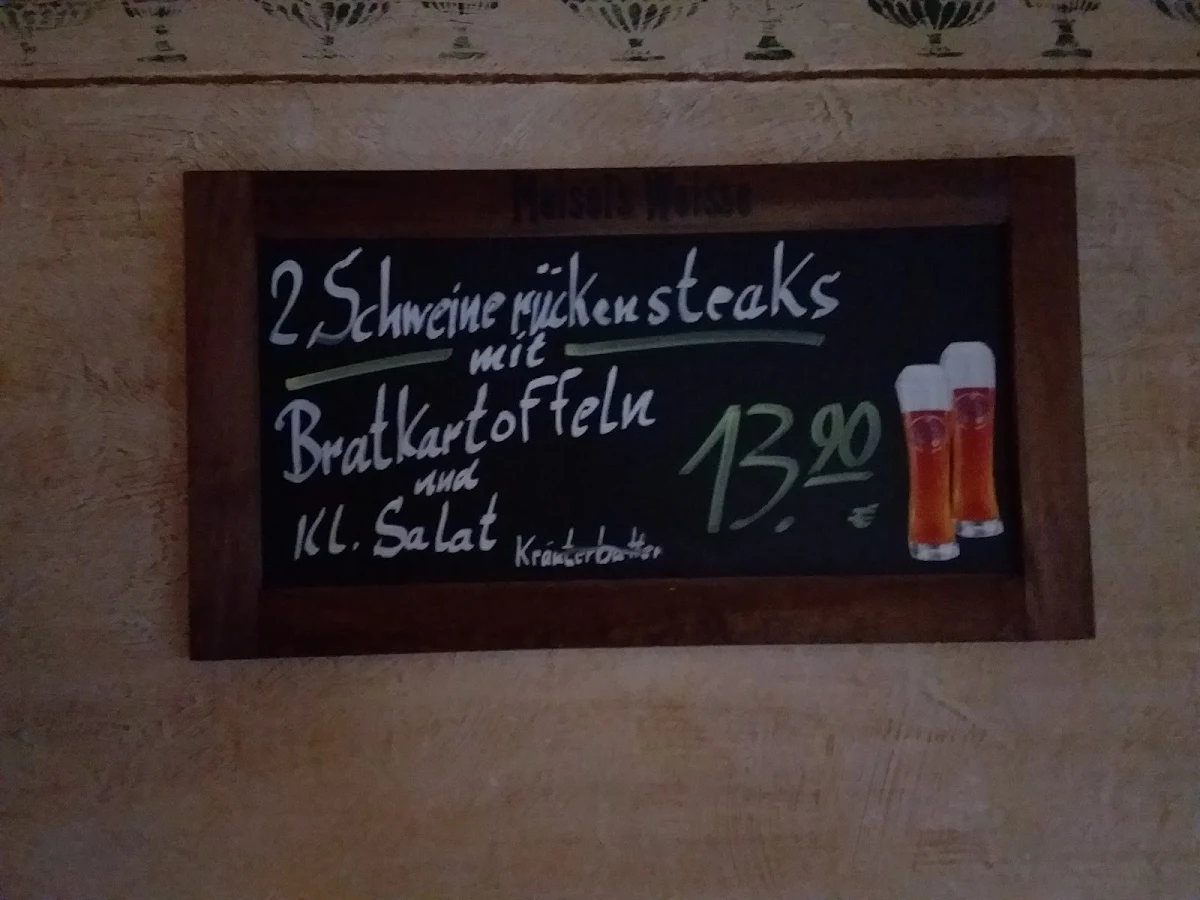 Maisel's Weisse
2 Schweinerückensteaks
mit
Bratkartoffeln
und
Kl. Salat
Kräuterbutter
13.90
€